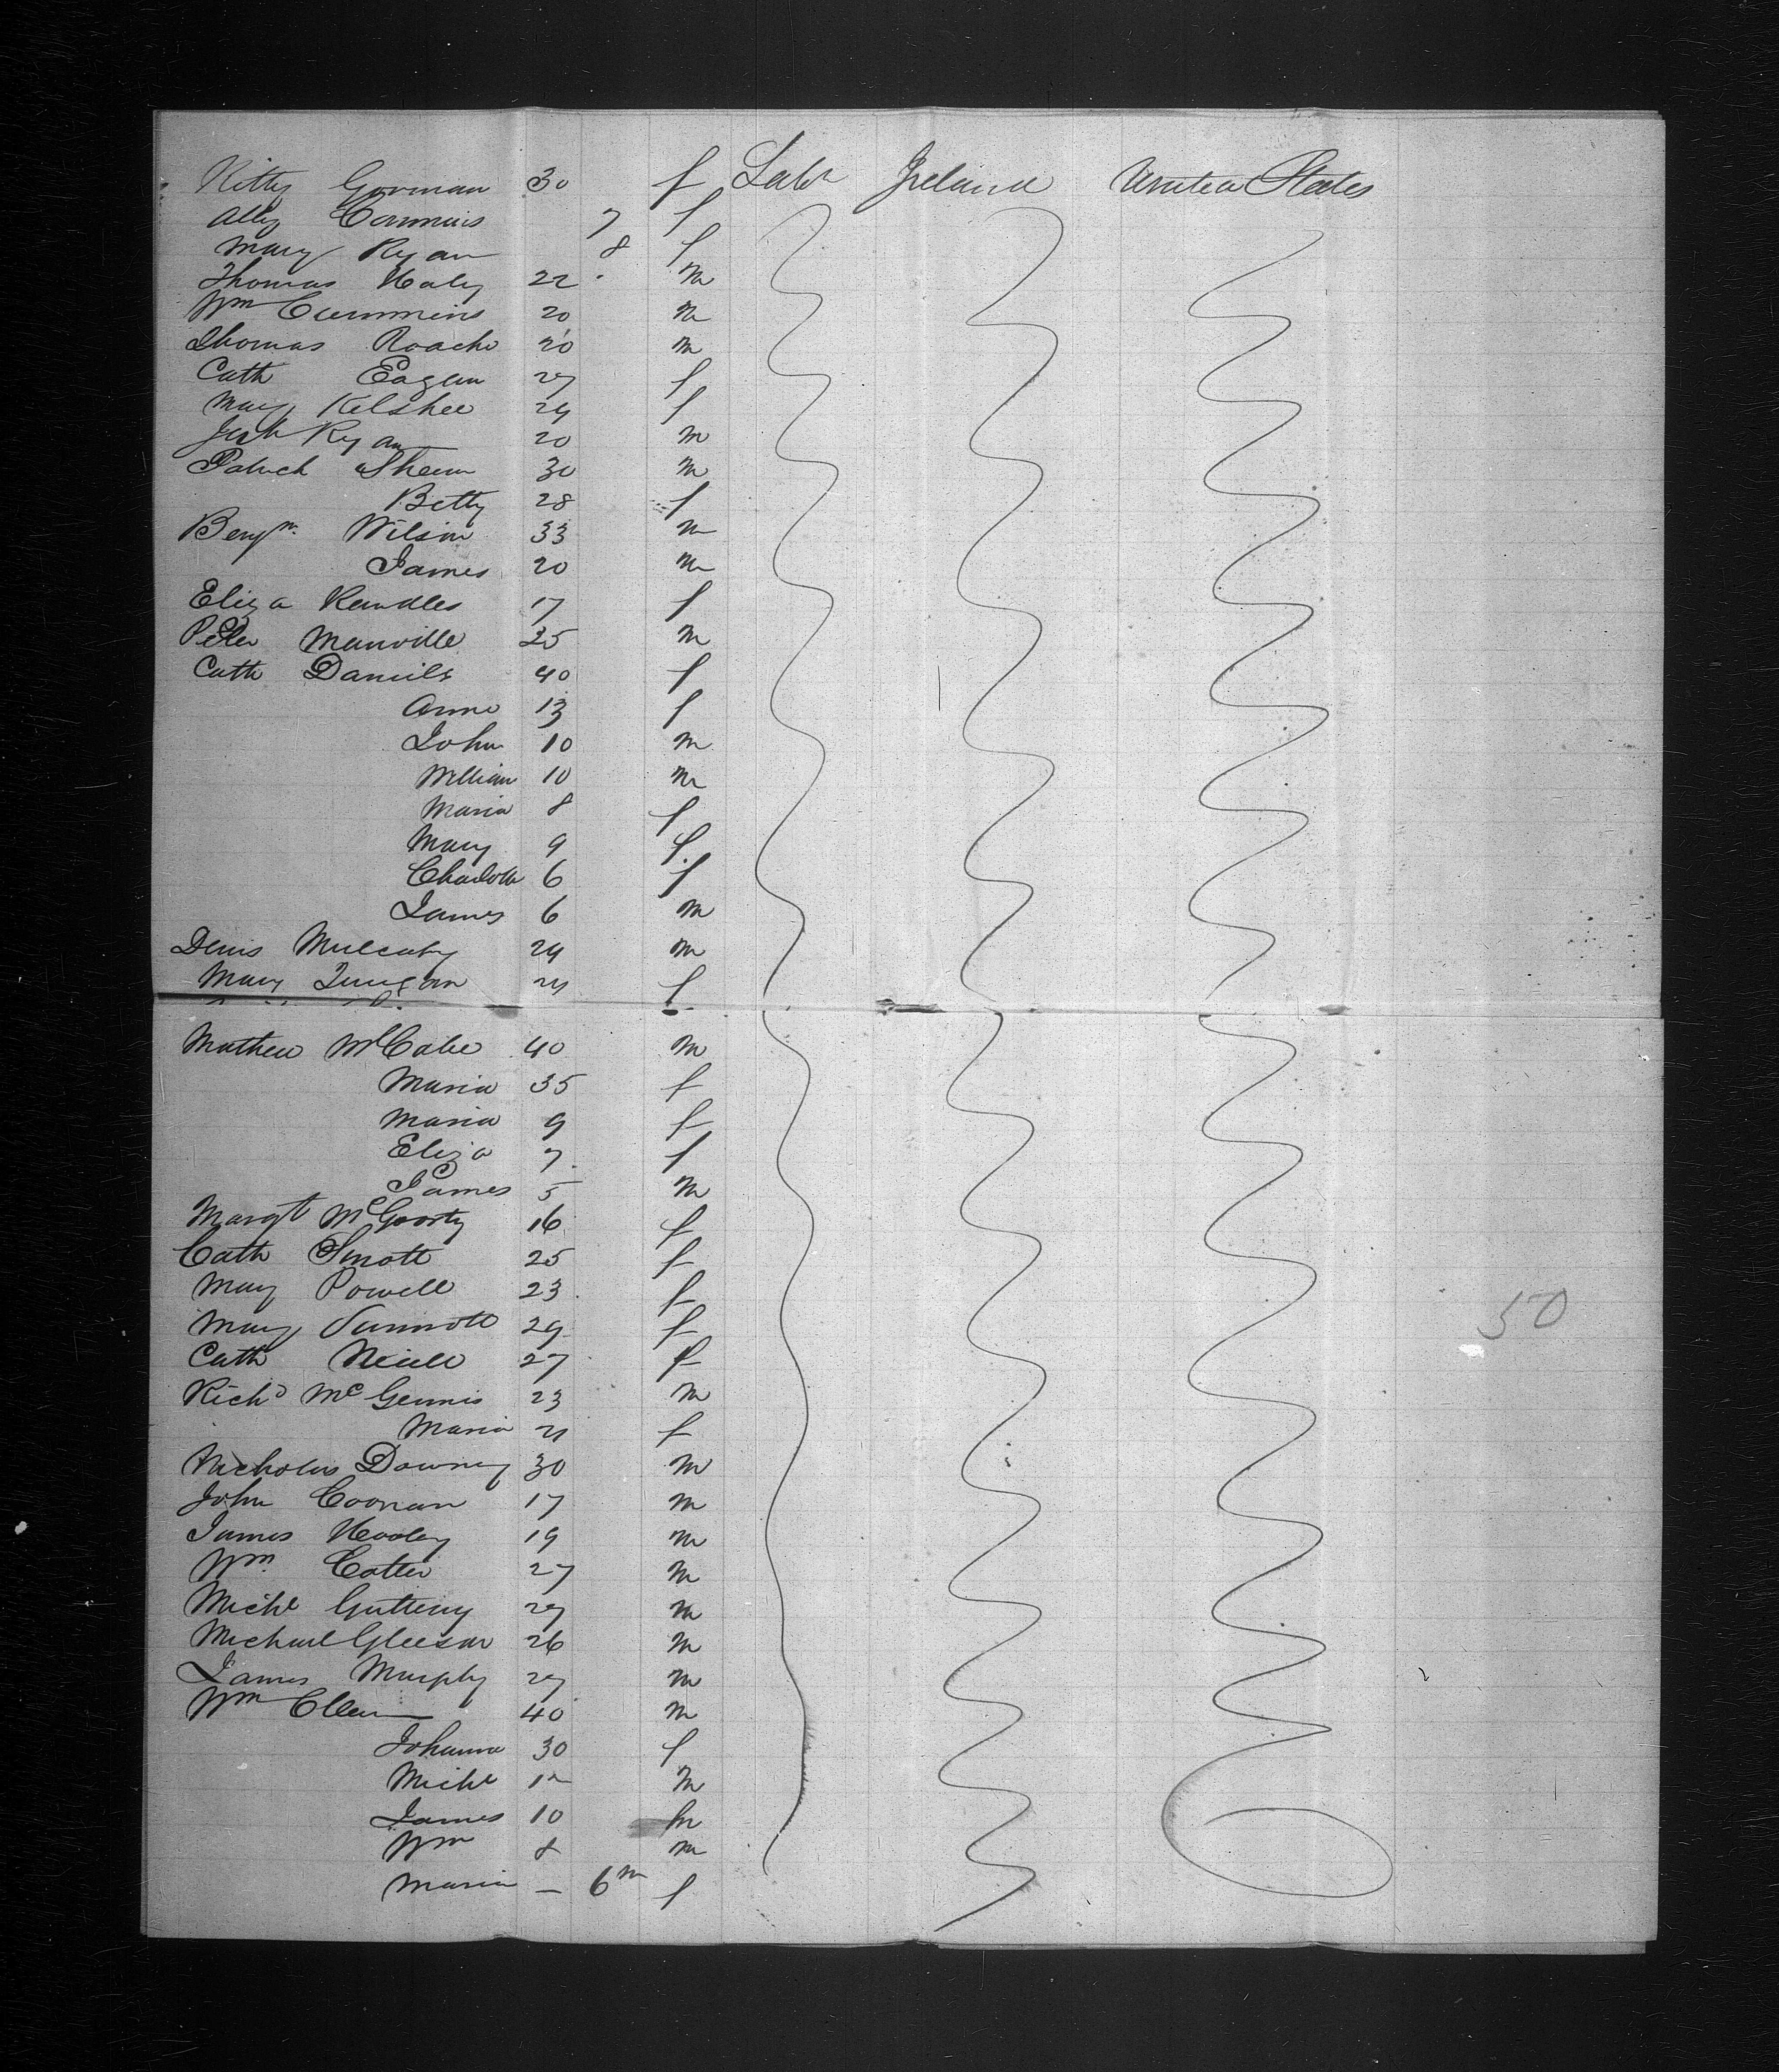 Kitty Gorman 30 f Labr Ireland United States
Ally Commins 7 f
Mary Ryan 8 f
Thomas Haley 22 m
Wm Cummins 20 m
Thomas Roache 20 m
Cath Eagan 27 f
Mary Kelshee 24 f
Ryan 20 m
Patrick Shean 30 m
Betty 28 f
Benjn. Wilson 33 m
James 20 m
Eliza Randles 17 f
Peter Manville 25 m
Cath Daniels 40 f
Anne 13 f
John 10 m
William 10 m
Maria 8 f
Mary 9 f
Charlotte 6 f
James 6 m
Denis Mulcahy 24 m
Mary 24 f
Mathew McCabe 40 m
Maria 35 f
Maria 9 f
Eliza 7 f
James 5 m
Margt McGoorty 16 f
Cath Sinott 25 f
Mary Powell 23 f
Mary 29 f
Cath Neill 27 f
Richd McGennis 23 m
Maria 21 f
Nicholas Downey 30 m
John Coonan 17 m
James Hooley 19 m
Wm. Cotter 27 m
Michl 27 m
Michael Gleeson 26 m
James Murphy 27 m
Wm 40 m
Johanna 30 f
Michl 12 m
James 10 m
Wm 8 m
Maria — 6m f
50